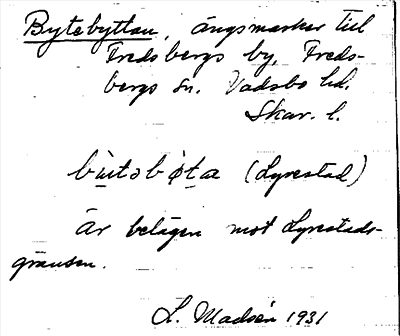 Bytebyttan, ängsmarker till
Fredsbergs by, Freds-
bergs sn. Vadsbo hd.
Skar. l.
(Lyrestad)
Är belägen mot Lyrestads-
gränsen.
L. Madsén 1931